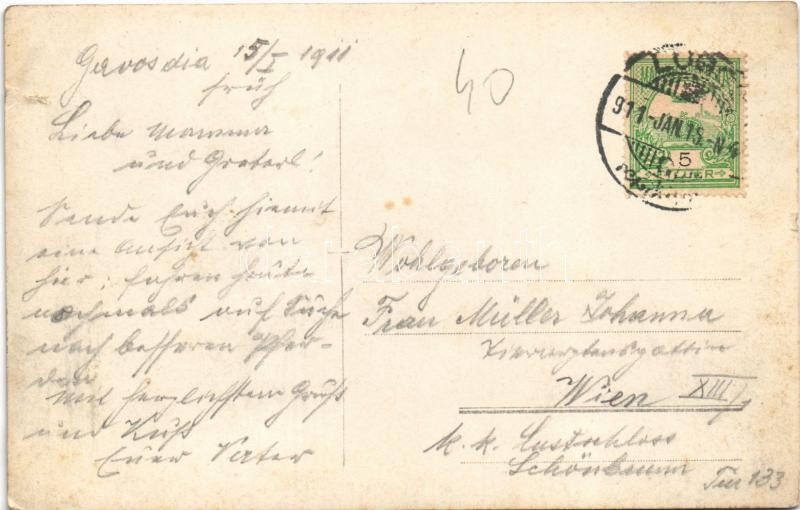 Gavosdia 15/I 1911
früh
Liebe Mamma
und Greterl!
Sende Euch hiemit
eine Ansicht von
hier; fahren heute
nochmals auf Suche
nach besseren Pfer-
den
Mit herzlichstem Gruß
und Kuß
Euer Vater
40
LUGOS
911-JAN.15.-N4
5
Wohlgeboren
Frau Müller Johanna
Tierarztensgattin
Wien XIII/1
k. k. Lustschloss
Schönbrunn
Tür 133